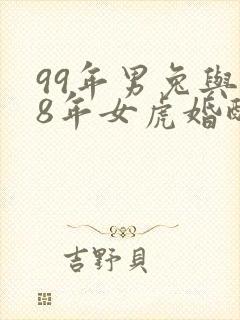 99年男兔與
8年女虎婚配
吉野貝